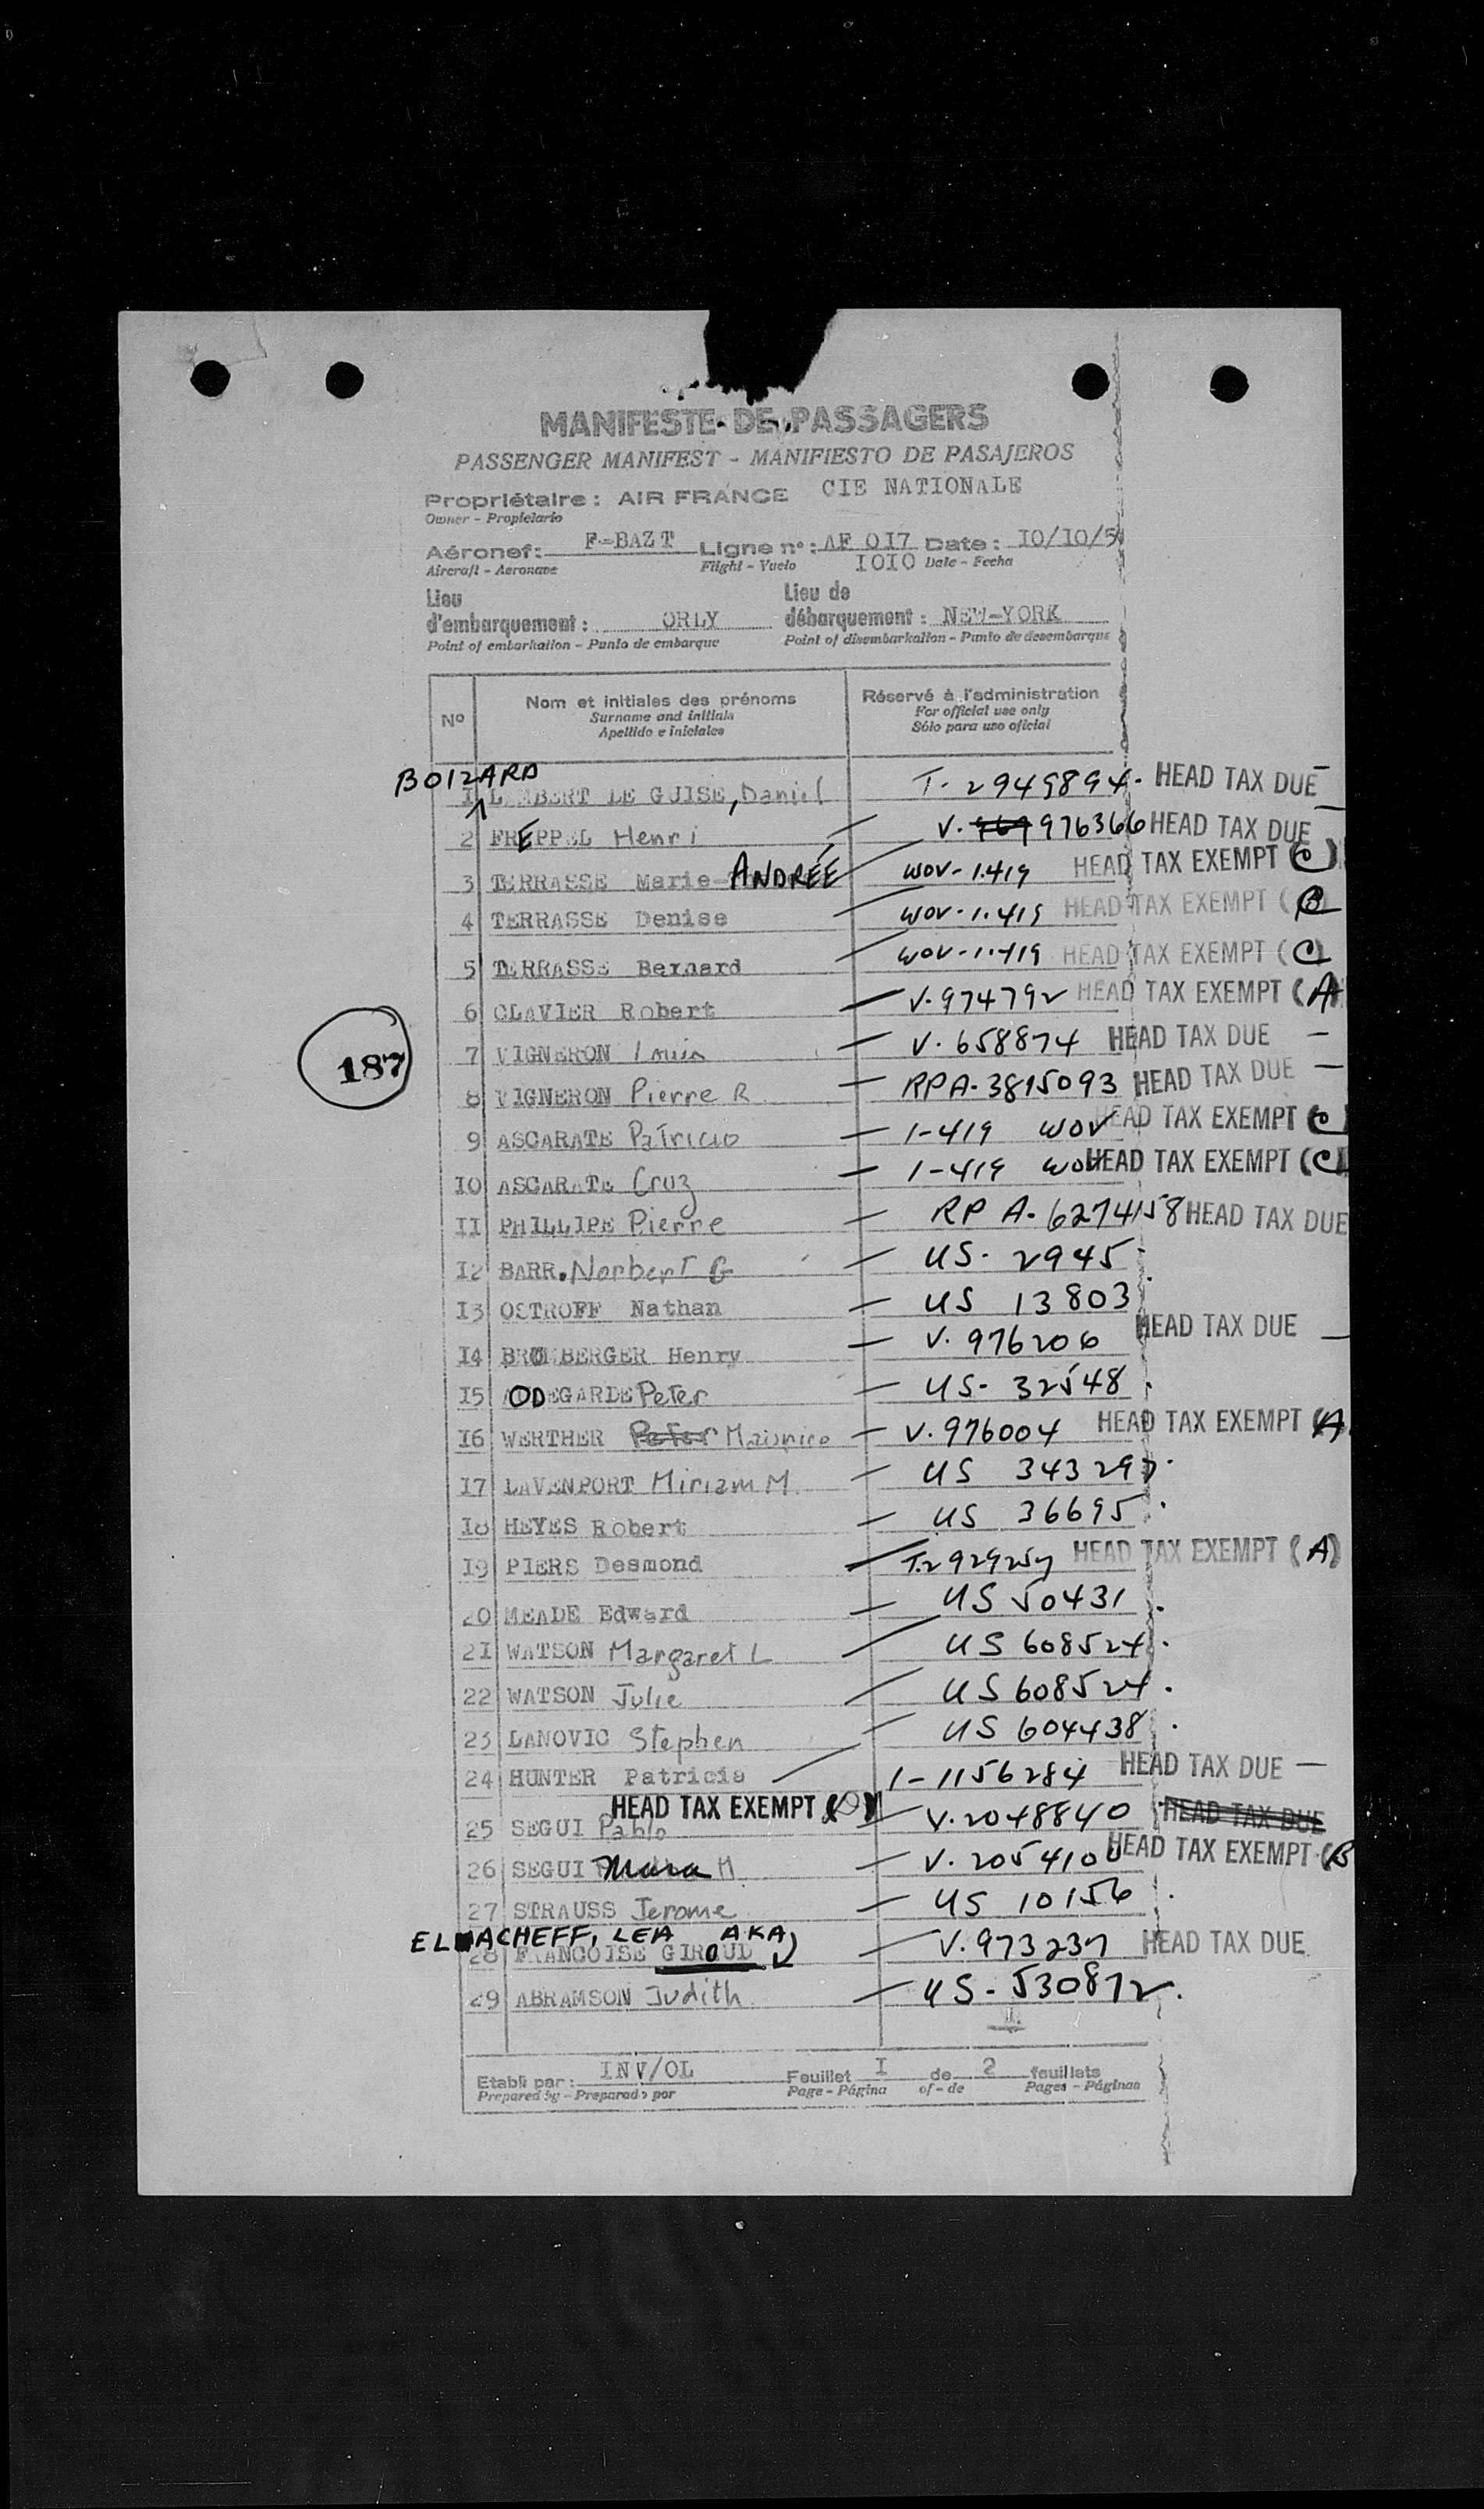 MANIFESTE DE PASSAGERS
PASSENGER MANIFEST - MANIFIESTO DE PASAJEROS
Propriétaire : AIR FRANCE CIE NATIONALE
Owner - Propietario
Aéronef: F-BAZT Ligne n° : AF 017 Date : IO/IO/5
Aircraft - Aeronave Flight - Vuelo IOIO Date - Fecha
Lieu d'embarquement : ORLY Lieu de débarquement : NEW-YORK
Point of embarkation - Punto de embarque Point of disembarkation - Punto de desembarque
N° Nom et initiales des prénoms Réservé à l'administration
Surname and initials For official use only
Apellido e iniciales Sólo para uso oficial
BOIZARD
1 LAMBERT LE GUISE, Daniel T- 2949894. HEAD TAX DUE -
2 FREPPEL Henri V. 969 976366 HEAD TAX DUE -
3 TERRASSE Marie ANDRÉE WOV-1.419 HEAD TAX EXEMPT (C)
4 TERRASSE Denise WOV-1.419 HEAD TAX EXEMPT
5 TERRASSE Bernard WOV-1.419 HEAD TAX EXEMPT (C)
6 CLAVIER Robert V.974792 HEAD TAX EXEMPT (A)
187
7 VIGNERON Louis V. 658874 HEAD TAX DUE -
8 VIGNERON Pierre R RPA-3815093 HEAD TAX DUE -
9 ASCARATE Patricio 1-419 WOV HEAD TAX EXEMPT (C)
IO ASCARATE Cruz 1-419 WOV HEAD TAX EXEMPT (C)
II PHILLIPE Pierre RP A-6274158 HEAD TAX DUE
I2 BARR. Norbert G US- 2945
I3 OSTROFF Nathan US 13803
I4 BROMBERGER Henry V. 976206 HEAD TAX DUE -
I5 ODEGARDE Peter US- 32548
I6 WERTHER Peter Maurice V.976004 HEAD TAX EXEMPT (A)
I7 LAVENPORT Miriam M. US 343297
I8 HEYES Robert US 36695
I9 PIERS Desmond T.2929257 HEAD TAX EXEMPT (A)
20 MEADE Edward US 50431
2I WATSON Margaret L US 608524
22 WATSON Julie US 608524
23 LANOVIC Stephen US 604438
24 HUNTER Patricia 1-1156284 HEAD TAX DUE -
HEAD TAX EXEMPT
25 SEGUI Pablo V.2048840 HEAD TAX DUE
26 SEGUI Maria M V. 2054100 HEAD TAX EXEMPT (B
27 STRAUSS Jerome US 10156
ELMACHEFF, LEA AKA
28 FRANCOISE GIROUD V.973237 HEAD TAX DUE
29 ABRAMSON Judith US-530872
Etabli par : INV/OL Feuillet I de 2 feuillets
Prepared by - Preparado por Page - Página of - de Pages - Páginas